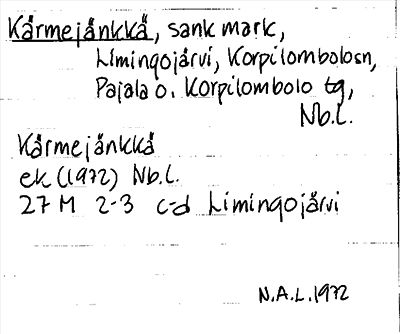 Kärmejänkkä, sank mark,
Limingojärvi, Korpilombolo sn,
Pajala o. Korpilombolo tg,
Nb.l.
Kärmejänkkä
ek (1972) Nb.l.
27 M 2-3 c-d Limingojärvi
N.A.L. 1972